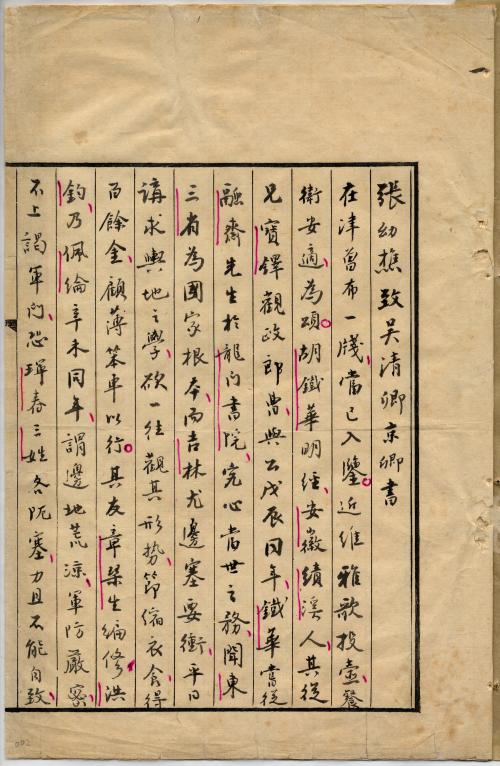 張幼樵致吳清卿京卿書
在津曾布一牋當已入鑒近維雅歌投壺餐
衛安適為頌胡鐵華明經安徽績溪人其從
兄寶鐸觀政郎曹與公戊辰同年鐵華嘗從
融齋先生於龍門書院究心當世之務聞東
三省為國家根本而吉林尤邊塞要衝平日
講求輿地之學欲一往觀其形勢節縮衣食得
百餘金顧薄笨車以行其友章榮生編修洪
鈞乃佩綸辛未同年謂邊地荒涼軍防嚴密
不上謁軍門恐琿春三姓各阨塞力且不能自致
002